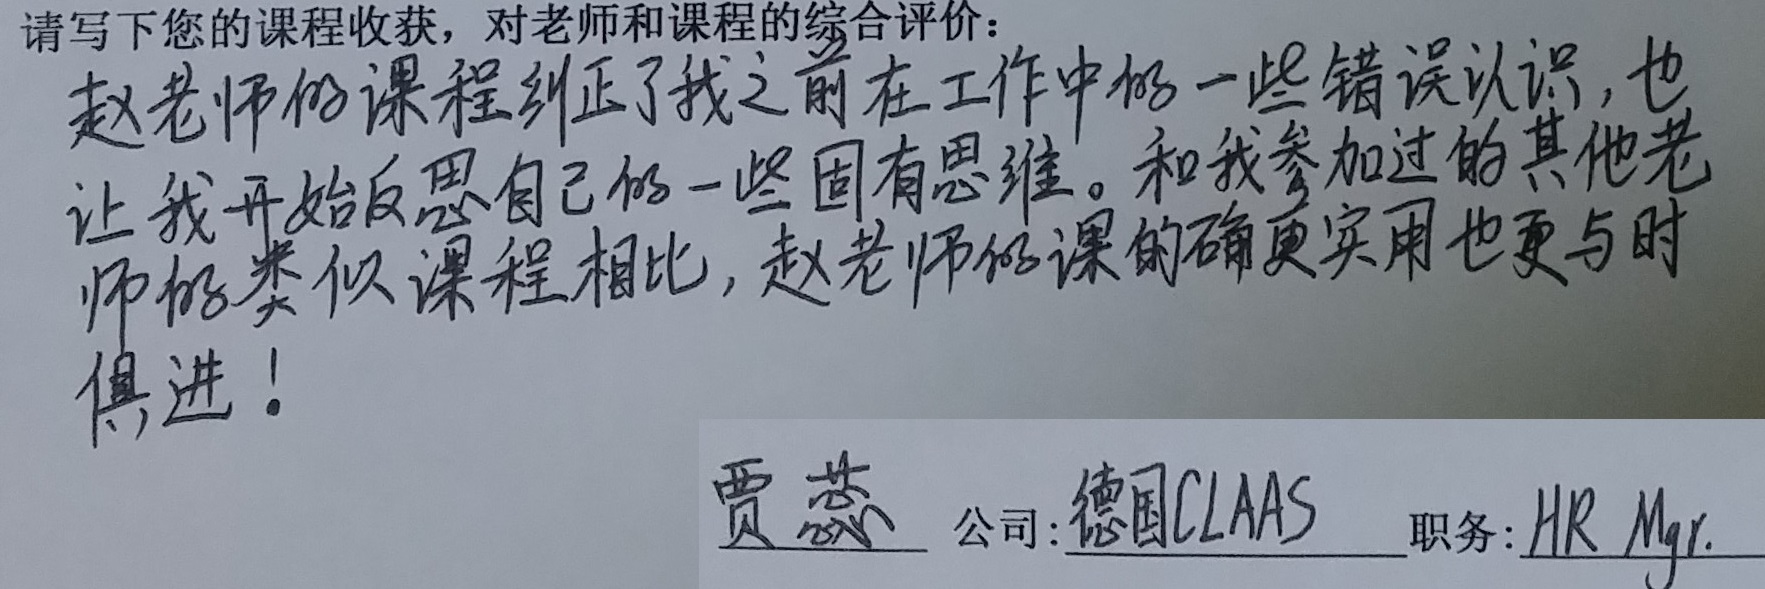 请写下您的课程收获，对老师和课程的综合评价：
赵老师的课程纠正了我之前在工作中的一些错误认识，也
让我开始反思自己的一些固有思维。和我参加过的其他老
师的类似课程相比，赵老师的课的确更实用也更与时
俱进！
贾蕊 公司：德国CLAAS 职务：HR Mgr.